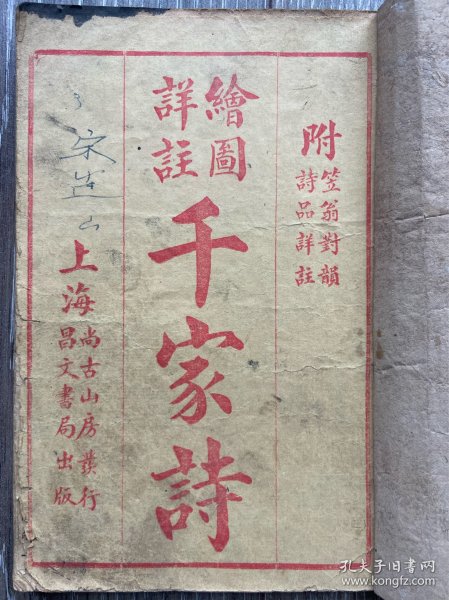 附
笠翁對韻
詩品詳註
繪圖
詳註
千家詩
上海
尚古山房發行
昌文書局出版
宋
孔夫子旧书网
www.kongfz.com